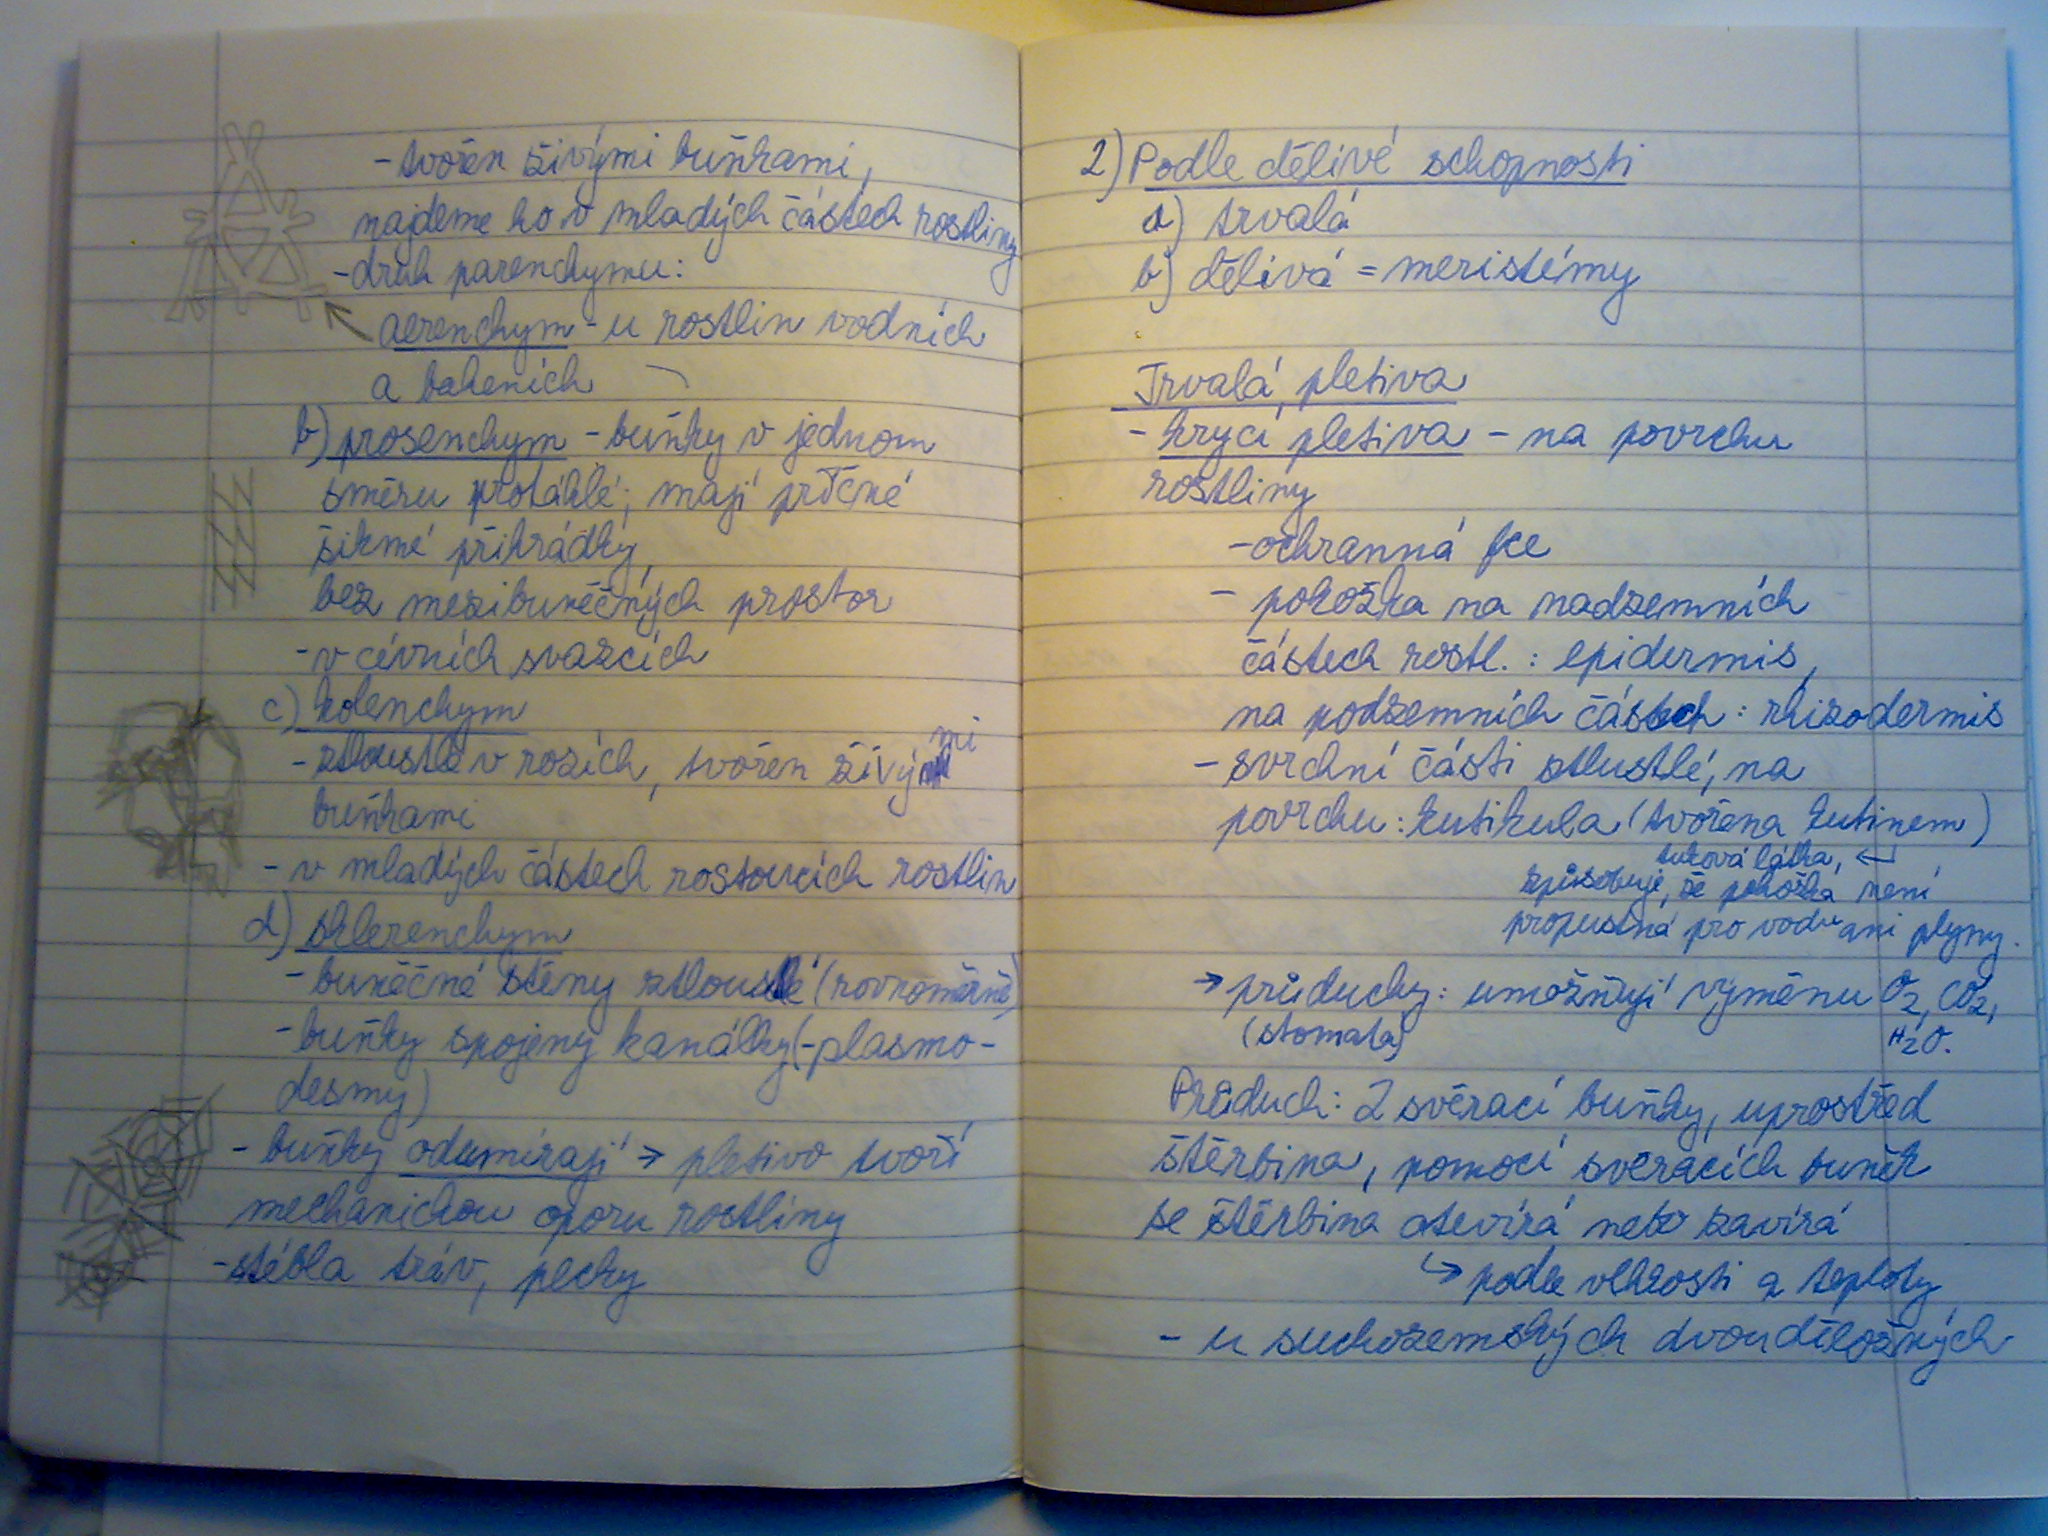 - tvořen živými buňkami,
najdeme ho v mladých částech rostliny
- druh parenchymu:
aerenchym - u rostlin vodních
a baheních
b) prosenchym - buňky v jednom
směru protáhlé; mají příčné
šikmé přihrádky,
bez mezibuněčných prostor
- v cévních svazcích
c) kolenchym
- ztloustlé v rozích, tvořen živými
buňkami
- v mladých částech rostoucích rostlin
d) sklerenchym
- buněčné stěny ztloustlé (rovnoměrně)
- buňky spojeny kanálky (-plasmo-
desmy)
- buňky odumírají → pletivo tvoří
mechanickou oporu rostliny
- stébla tráv, pecky
2) Podle dělivé schopnosti
a) trvalá
b) dělivá = meristémy
Trvalá pletiva
- krycí pletiva - na povrchu
rostliny
- ochranná fce
- pokožka na nadzemních
částech rostl. : epidermis,
na podzemních částech : rhizodermis
- svrchní části stlustlé, na
povrchu : kutikula (tvořena kutinem)
tuková látka, ↵
způsobuje, že pokožka není
propustná pro vodu ani plyny.
→ průduchy : umožňují výměnu O₂, CO₂,
(stomata) H₂O.
Průduch : 2 svěrací buňky, uprostřed
štěrbina, pomocí svěracích buněk
se štěrbina otevírá nebo zavírá
↳ podle vlhkosti a teploty
- u suchozemských dvouděložných